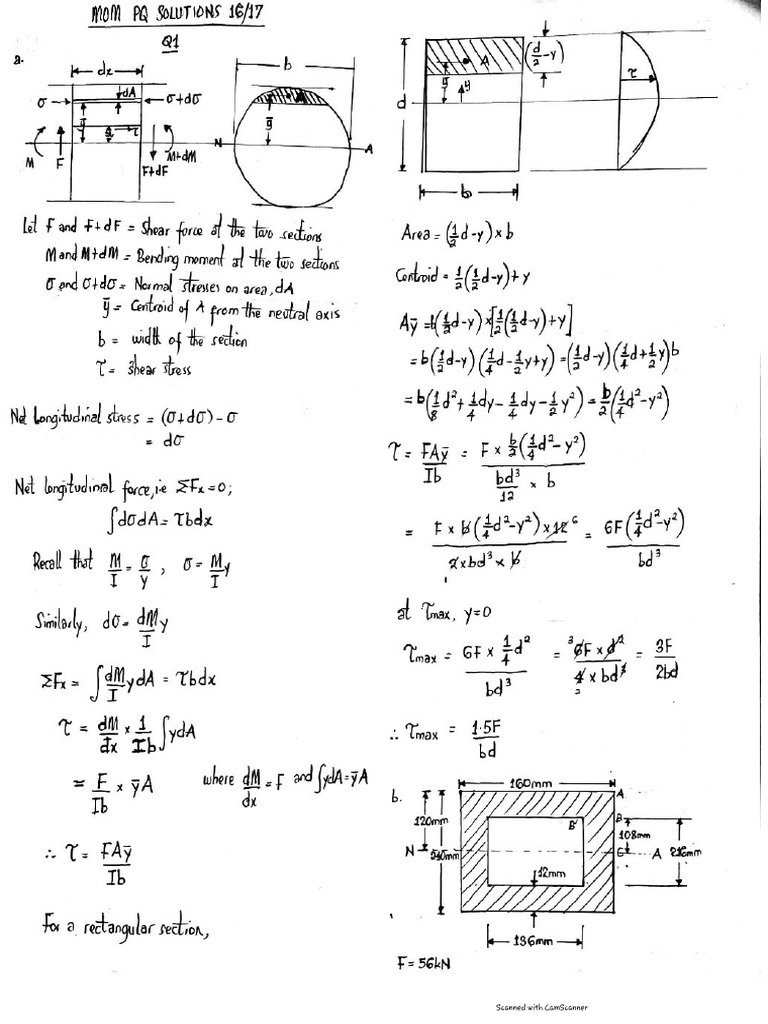 MOM PQ SOLUTIONS 16/17
Q1
a.
dx
dA
σ
σ+dσ
ȳ
τ
M
F
F+dF
M+dM
b
ȳ
N
A
Let F and F+dF = Shear force at the two sections
M and M+dM = Bending moment at the two sections
σ and σ+dσ = Normal stresses on area, dA
ȳ = Centroid of A from the neutral axis
b = width of the section
τ = shear stress
Net longitudinal stress = (σ+dσ) - σ
= dσ
Net longitudinal force, i.e ΣFx = 0;
∫dσdA = τbdx
Recall that M/I = σ/y , σ = M/I y
Similarly, dσ = dM/I y
ΣFx = ∫dM/I ydA = τbdx
τ = dM/dx × 1/Ib ∫ydA
= F/Ib × ȳA where dM/dx = F and ∫ydA = ȳA
∴ τ = FAȳ/Ib
For a rectangular section,
d
A
(d/2 - y)
ȳ
y
b
τ
Area = (1/2 d - y) × b
Centroid = 1/2(1/2 d - y) + y
Aȳ = b(1/2 d - y) × [1/2(1/2 d - y) + y]
= b(1/2 d - y)(1/4 d - 1/2 y + y) = (1/2 d - y)(1/4 d + 1/2 y)b
= b(1/8 d² + 1/4 dy - 1/4 dy - 1/2 y²) = b/2(1/4 d² - y²)
τ = FAȳ/Ib = F × b/2(1/4 d² - y²) / bd³/12 × b
= F × b(1/4 d² - y²) × 12 6 / 2 × bd³ × b = 6F(1/4 d² - y²)/bd³
at τmax, y=0
τmax = 6F × 1/4 d² / bd³ = 3 6F × d² / 4 2 × bd³ = 3F/2bd
∴ τmax = 1.5F/bd
b.
160mm
A
120mm
B
B'
108mm
N
240mm
G
A
216mm
12mm
136mm
F = 56kN
Scanned with CamScanner